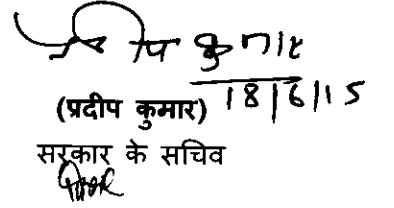 प्रदीप कुमार
18/6/15
(प्रदीप कुमार)
सरकार के सचिव